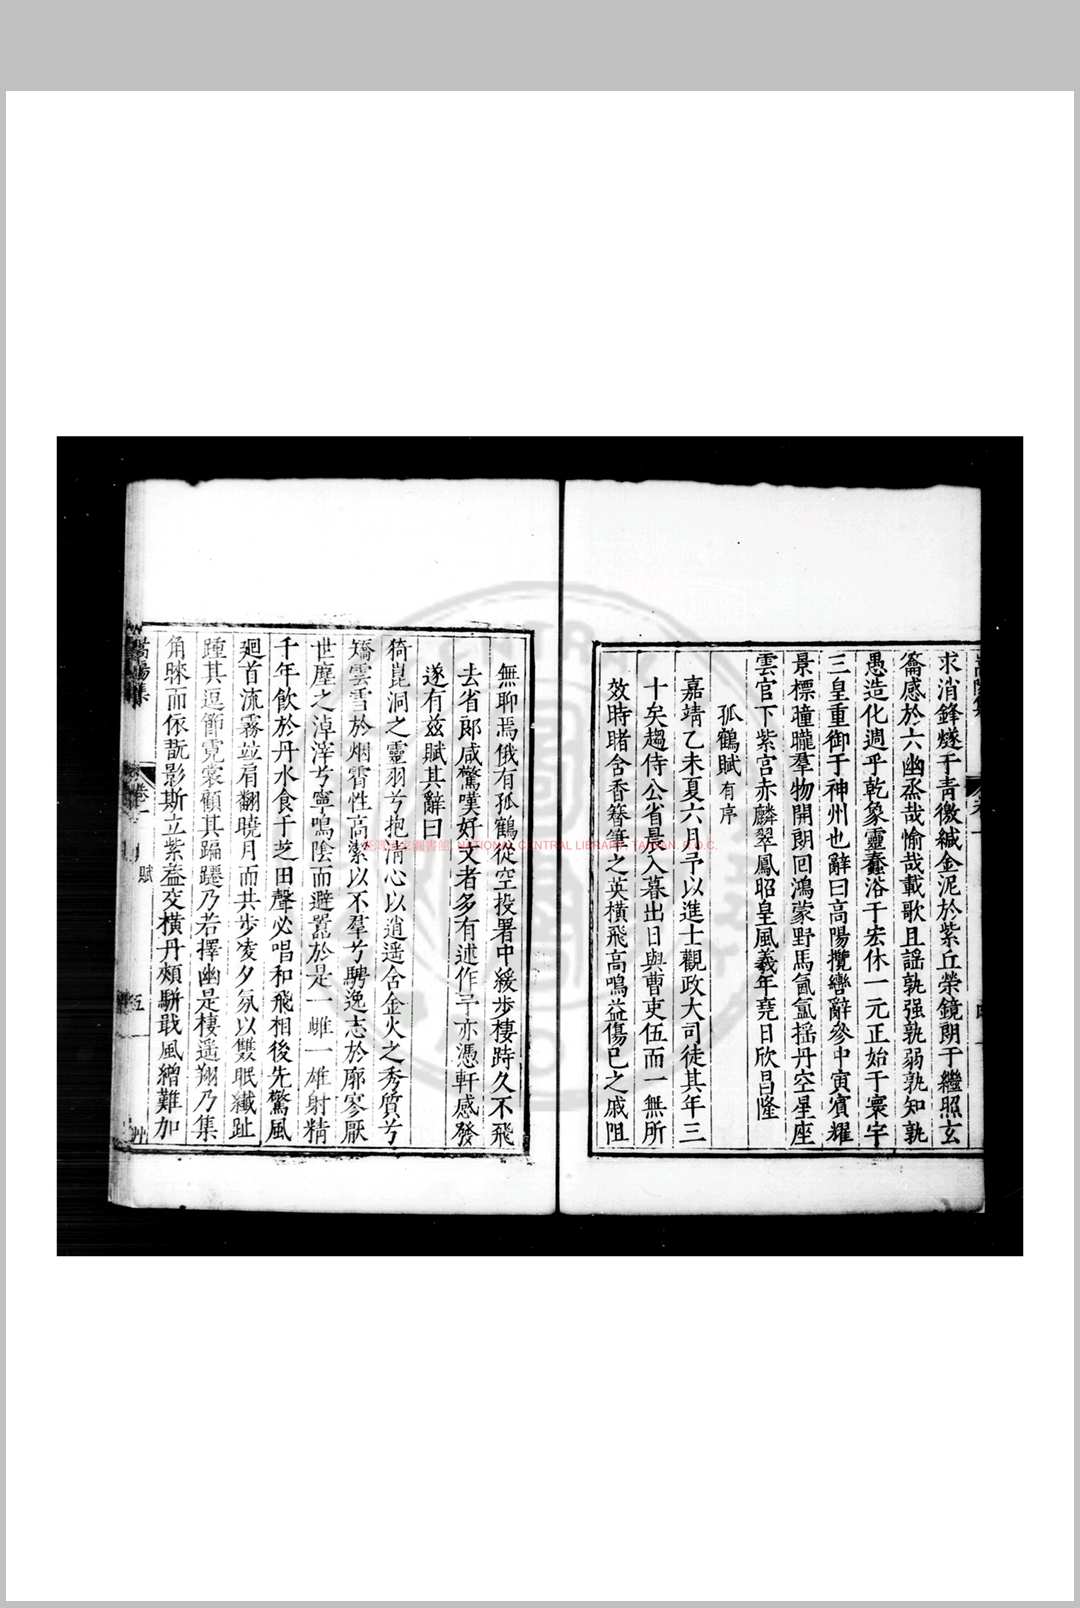 求消鋒燧于青徼緘金泥於紫丘榮鏡朗于繼照玄
籥感於六幽烝哉愉哉載歌且謡孰强孰弱孰知孰
愚造化週乎乾象靈蠢浴于宏休一元正始于寰宇
三皇重御于神州也辭曰高陽攬轡辭參中寅賓耀
景標曈曨羣物開朗回鴻蒙野馬氤氳揺丹空星座
雲官下紫宫赤麟翠鳳昭皇風羲年堯日欣昌隆
孤鶴賦有序
嘉靖乙未夏六月予以進士觀政大司徒其年三
十矣趨侍公省晨入暮出日與曹吏伍而一無所
效時睹含香簪筆之英横飛高鳴益傷已之戚阻
無聊焉俄有孤鶴從空投署中緩步棲時久不飛
去省郎咸驚嘆好文者多有述作予亦憑軒感發
遂有兹賦其辭曰
猗崑洞之靈羽兮抱清心以逍遥含金火之秀質兮
矯雲雪於烟霄性高潔以不羣兮騁逸志於廓寥厭
世塵之淖滓兮寧鳴陰而避嚣於是一雌一雄射精
千年飲於丹水食于芝田聲必唱和飛相後先驚風
廻首流霧竝肩翻曉月而共步凌夕氛以雙眠纎趾
踵其逗節霓裳顧其蹁躚乃若擇幽是棲遥翔乃集
角睞而依翫影斯立紫蓋交横丹頰駢戢風繒難加
卷一
賦
五
國家圖書館 NATIONAL CENTRAL LIBRARY, TAIWAN, R.O.C.